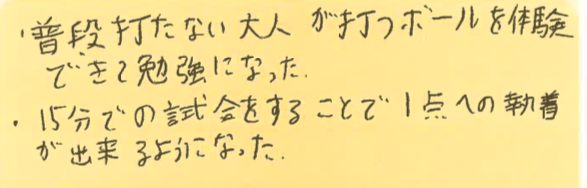 ・普段打たない大人が打つボールを体験
できて勉強になった.
・15分での試合をすることで1点への執着
が出来るようになった.